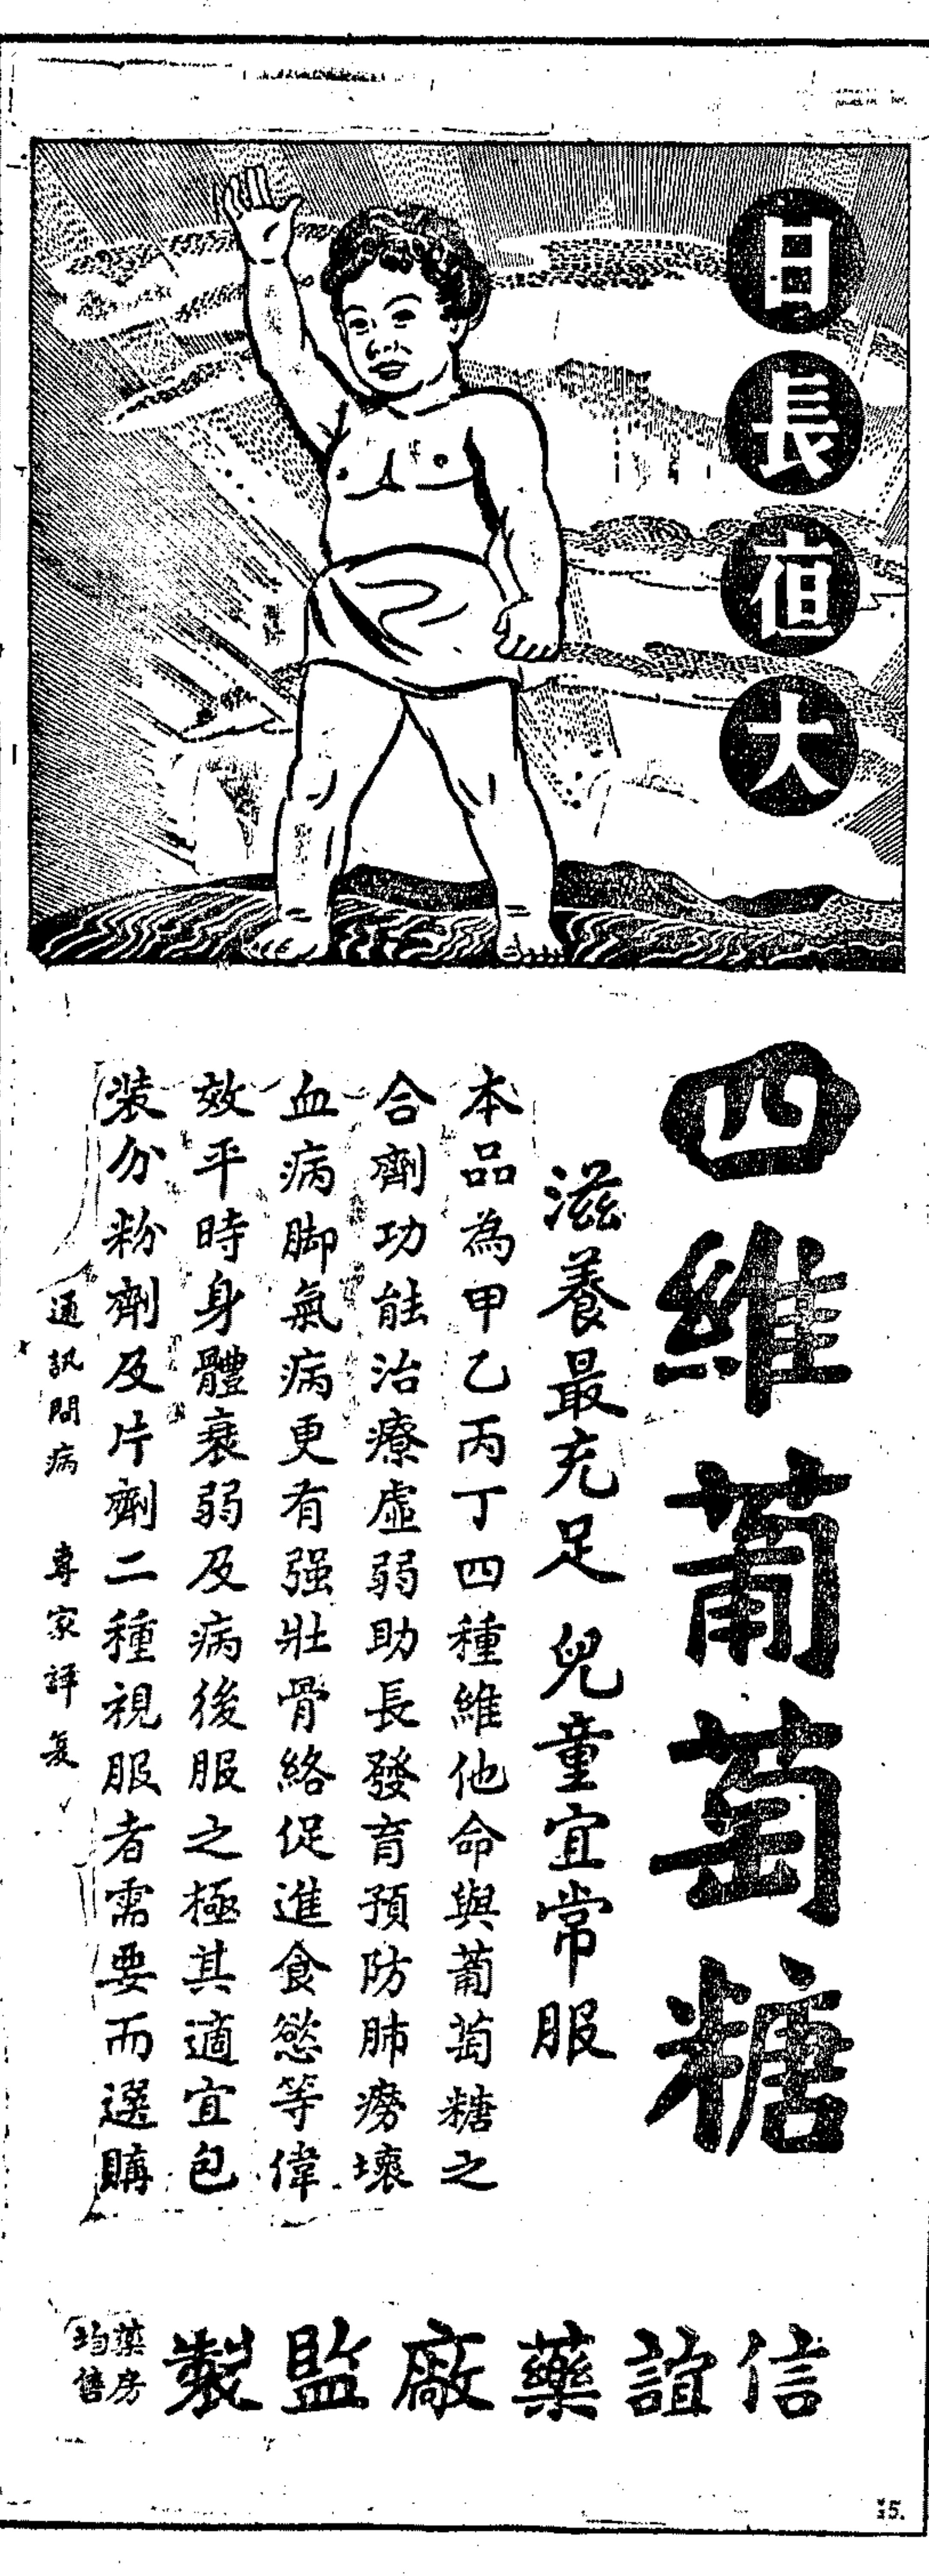 日長亱大
四維葡萄糖
滋養最充足 兒童宜常服
本品為甲乙丙丁四種維他命與葡萄糖之
合劑功能治療虛弱助長發育預防肺癆壞
血病脚氣病更有强壯骨絡促進食慾等偉
效平時身體衰弱及病後服之極其適宜包
裝分粉劑及片劑二種視服者需要而選購
通訊問病 專家詳复
信誼藥廠監製
藥房
均售